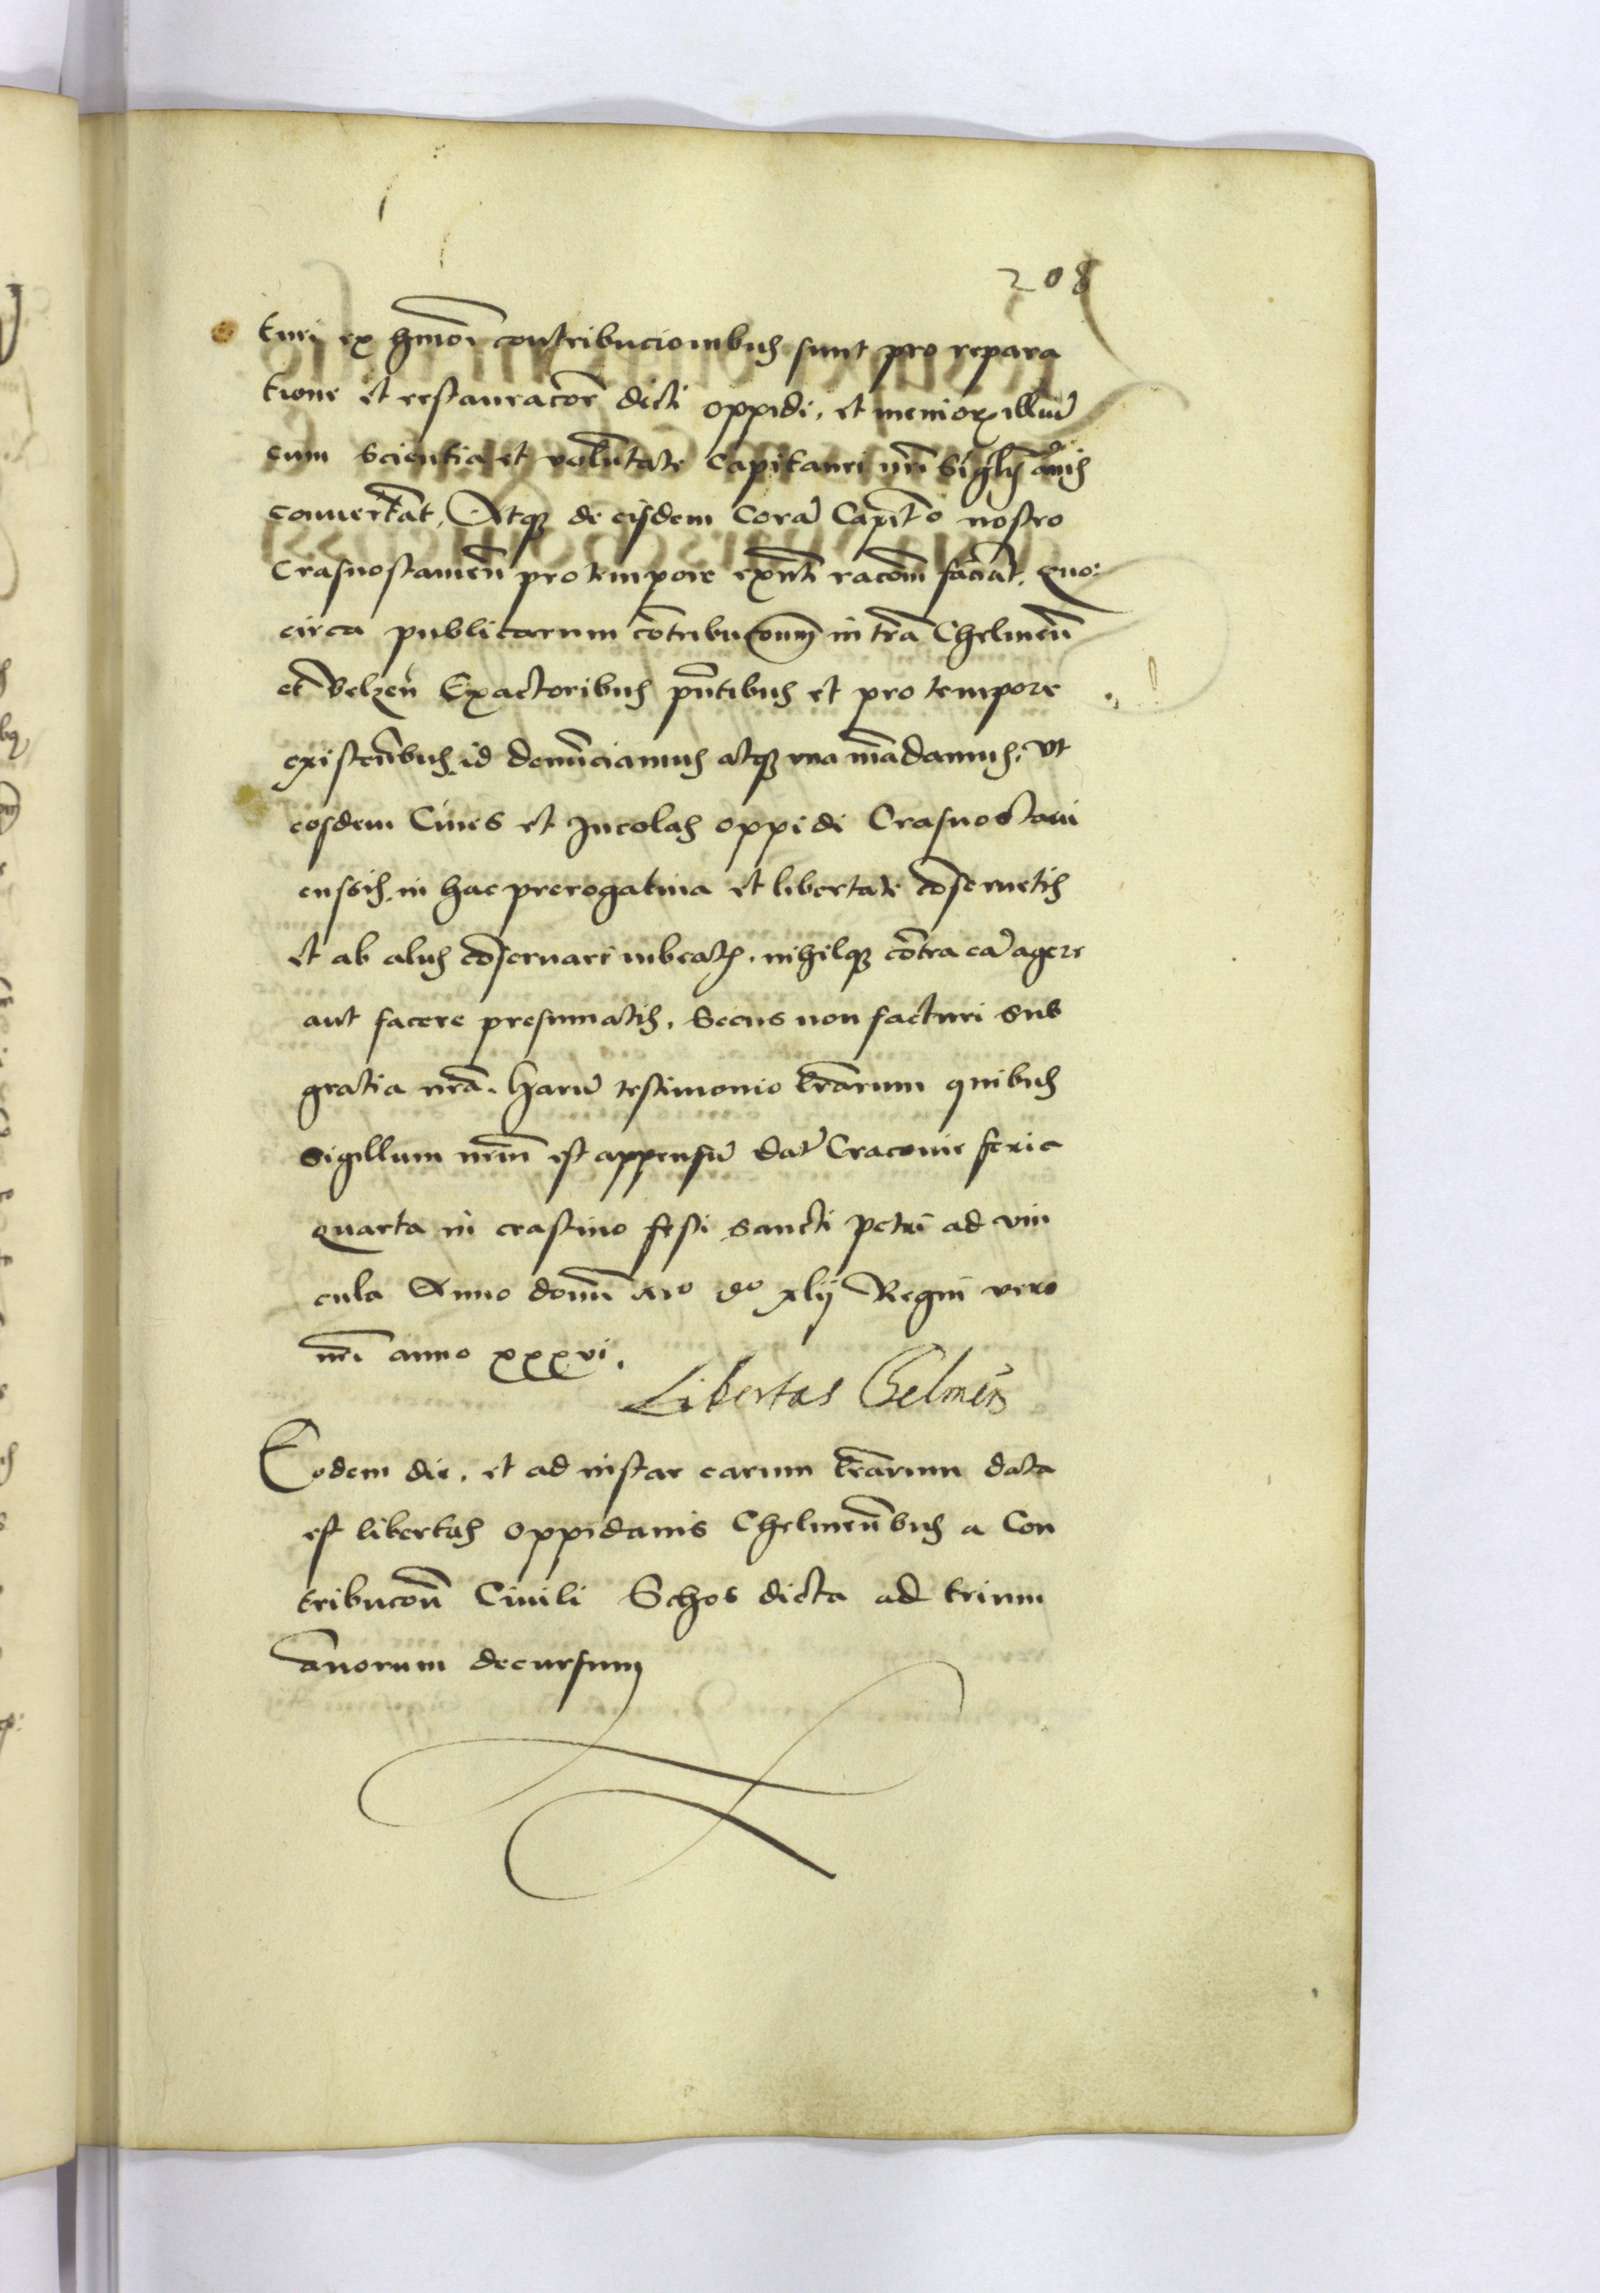 208
turi ex hmōi contribucionibus sunt pro repara
tione et restauracōe dicti oppidi, et menior illiū
cum scientia et voluntate Capitanei nrī singlis annis
conuertāt, Atq de eisdem Corā Capitō nostro
Crasnostamēn pro tempore exñti racōm faciāt. Quo:
circa publicarum cōntribucionum in trā Chelmēn
et Belzeñ Exactoribus pñtibus et pro tempore
existeñbus id denūnciamus atq una mādamus, vt
eosdem Ciues et Incolas oppidi Crasnostaui
ensis in hac prerogatiua et libertate cōseruetis
et ab aliis cōseruari iubeatis, nihilq cōtra eā agere
aut facere presumatis, Secus non facturi sub
gratia nrā. Harū testimonio lrārum quibus
Sigillum nrūm est appensū Datū Cracouie feria
quarta in crastino festi Sancti Petri ad vin
cula Anno domī Mo Do xlij Regni vero
nrī anno xxxvi.
Libertas Chelmēn
Eodem die, et ad instar earum lrārum data
est libertas oppidanis Chelmeñbus a Con
tribucōn Ciuili Schos dicta ad trium
ānorum decursum